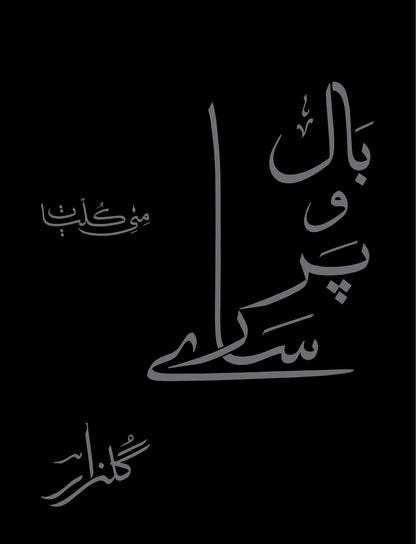 بال
و
پَر
سارے
مِنی کُلّیات
گلزار